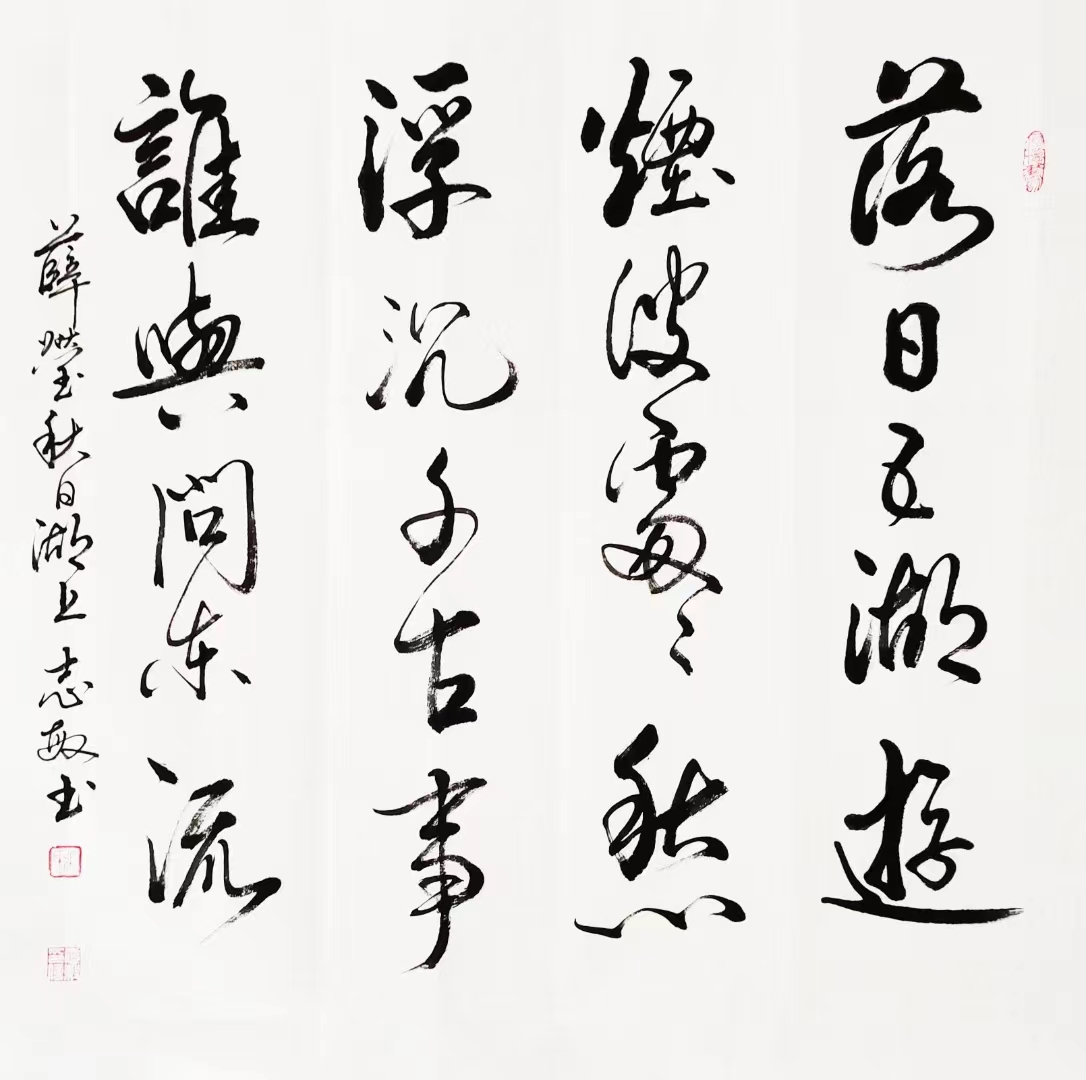 落日五湖遊
煙波處〻愁
浮沉千古事
誰與問东流
薛瑩秋日湖上 志敏书